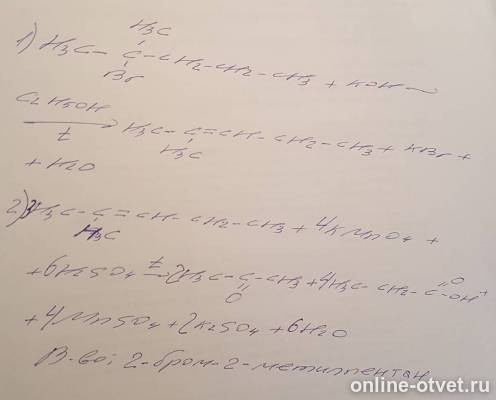 H3C
1) H3C - C - CH2 - CH2 - CH3 + KOH
Br
C2H5OH
t
H3C - C = CH - CH2 - CH3 + KBr +
H3C
+ H2O
2) H3C - C = CH - CH2 - CH3 + 4KMnO4 +
H3C
+ 6H2SO4 t = 2H3C - C - CH3 + 4H3C - CH2 - C OH +
O
O
+ 4MnSO4 + 2K2SO4 + 6H2O
В-во: 2-бром-2-метилпентан.
online-otvet.ru